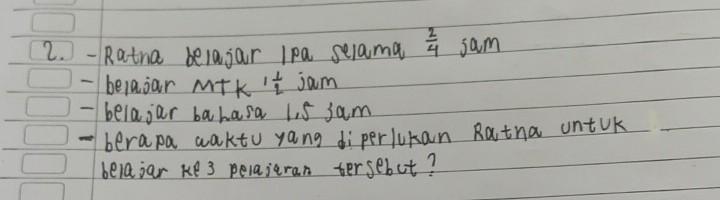 2. - Ratna belajar Ipa selama 2/4 jam
- belajar MTK 1 1/2 jam
- belajar bahasa 1,5 jam
- berapa waktu yang diperlukan Ratna untuk
belajar ke 3 pelajaran tersebut?